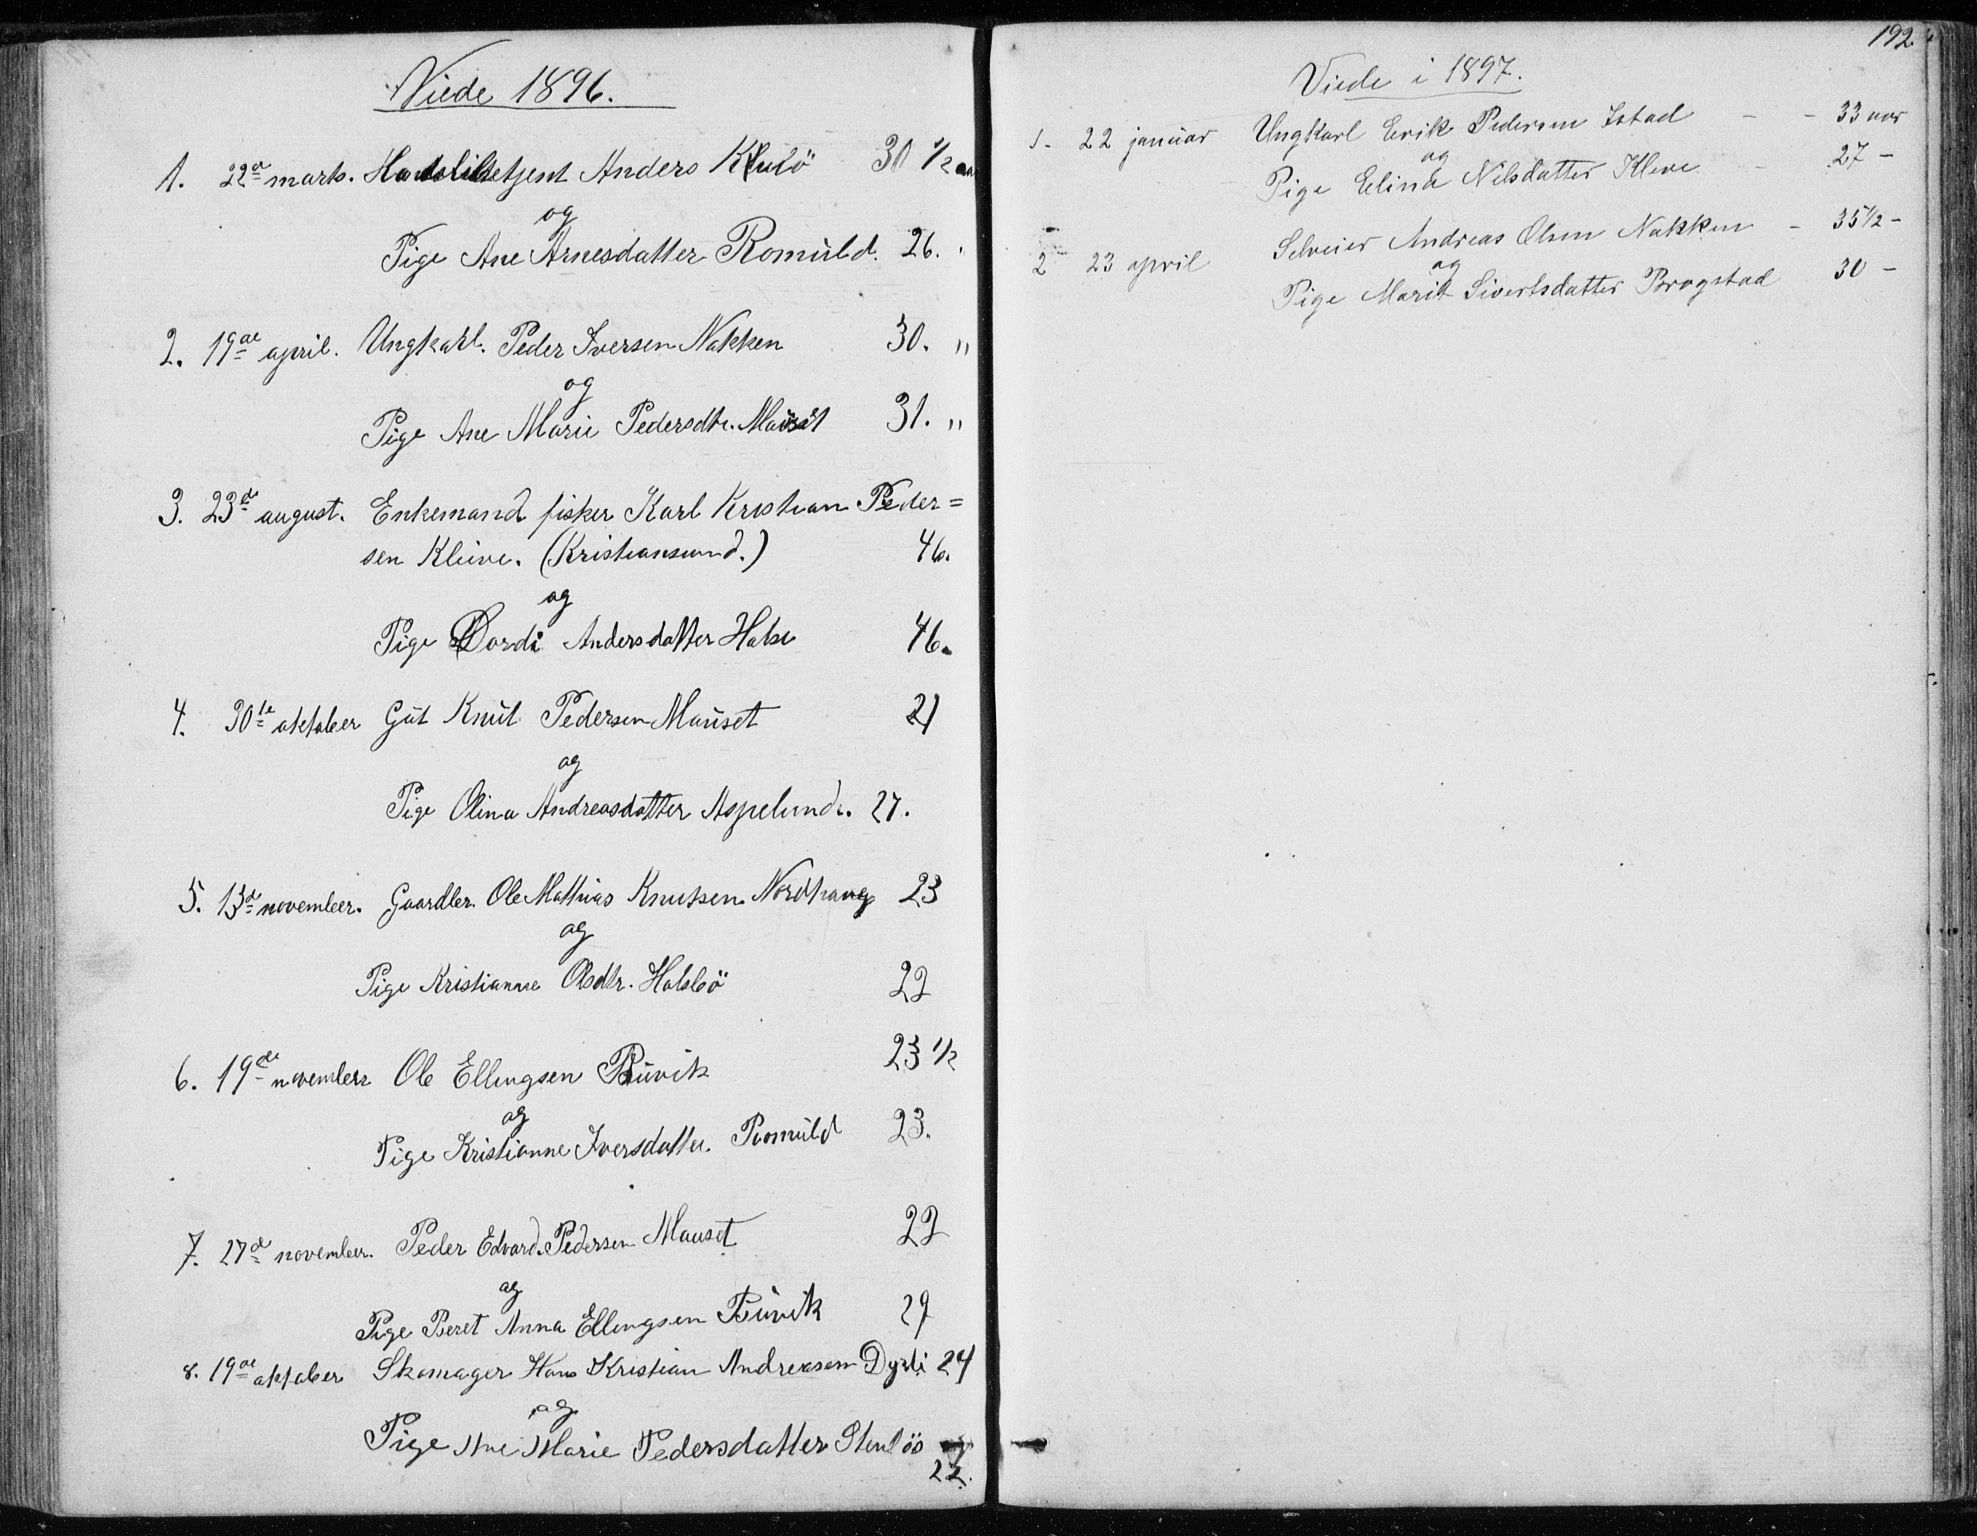 Viede 1896.
1. 22de marts. Anders 30 1/2 aar
og
Pige Ane Arnesdatter Romuld. 26. "
2. 19de april. Ungkarl. Peder Iversen Nakken 30. "
og
Pige Ane Marie Pedersdtr. Mauset 31. "
3. 23de august. Enkemand fisker Karl Kristian Peder=
sen Kleive. (Kristiansund.) 46.
og
Pige Dordi Andersdatter Halse 46.
4. 30te oktober Gut Knut Pedersen Mauset 21
og
Pige Olina Andreasdatter Aspelund. 27.
5. 13de november. Gaardbr. Ole Mathias Knutsen Nordhaug 23
og
Pige Kristianne Olsdtr. Halsbö 22
6. 19de november Ole Ellingsen Buvik 23 1/2
og
Pige Kristianne Iversdatter. Romuld 23.
7. 27de november. Peder Edvard Pedersen Mauset 22
og
Pige Beret Anna Ellingsen Buvik 29
8. 19de oktober Skomager Hans Kristian Andreasen Dyrli 24
og
Pige Ane Marie Pedersdatter Stenlös
22.
192.
Viede i 1897.
1. 22 januar Ungkarl Erik Pedersen Istad - - 33 aar
og
Pige Elina Nilsdatter Kleve - 27 -
2 23 april Selveier Andreas Olsen Nakken - 35 1/2 -
og
Pige Marit Sivertsdatter Brogstad 30 -